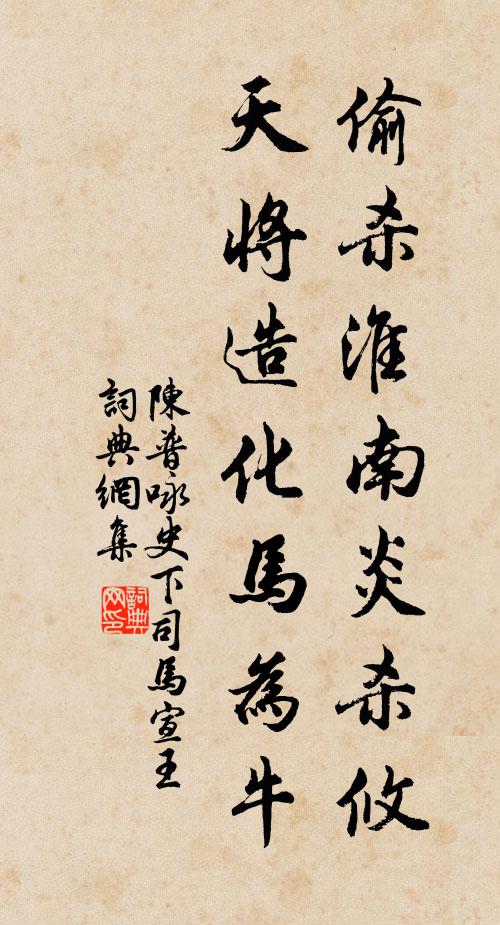 偷杀淮南炎杀攸
天将造化馬為牛
陳普咏史下司馬宣王
詞典網集
詞典网印